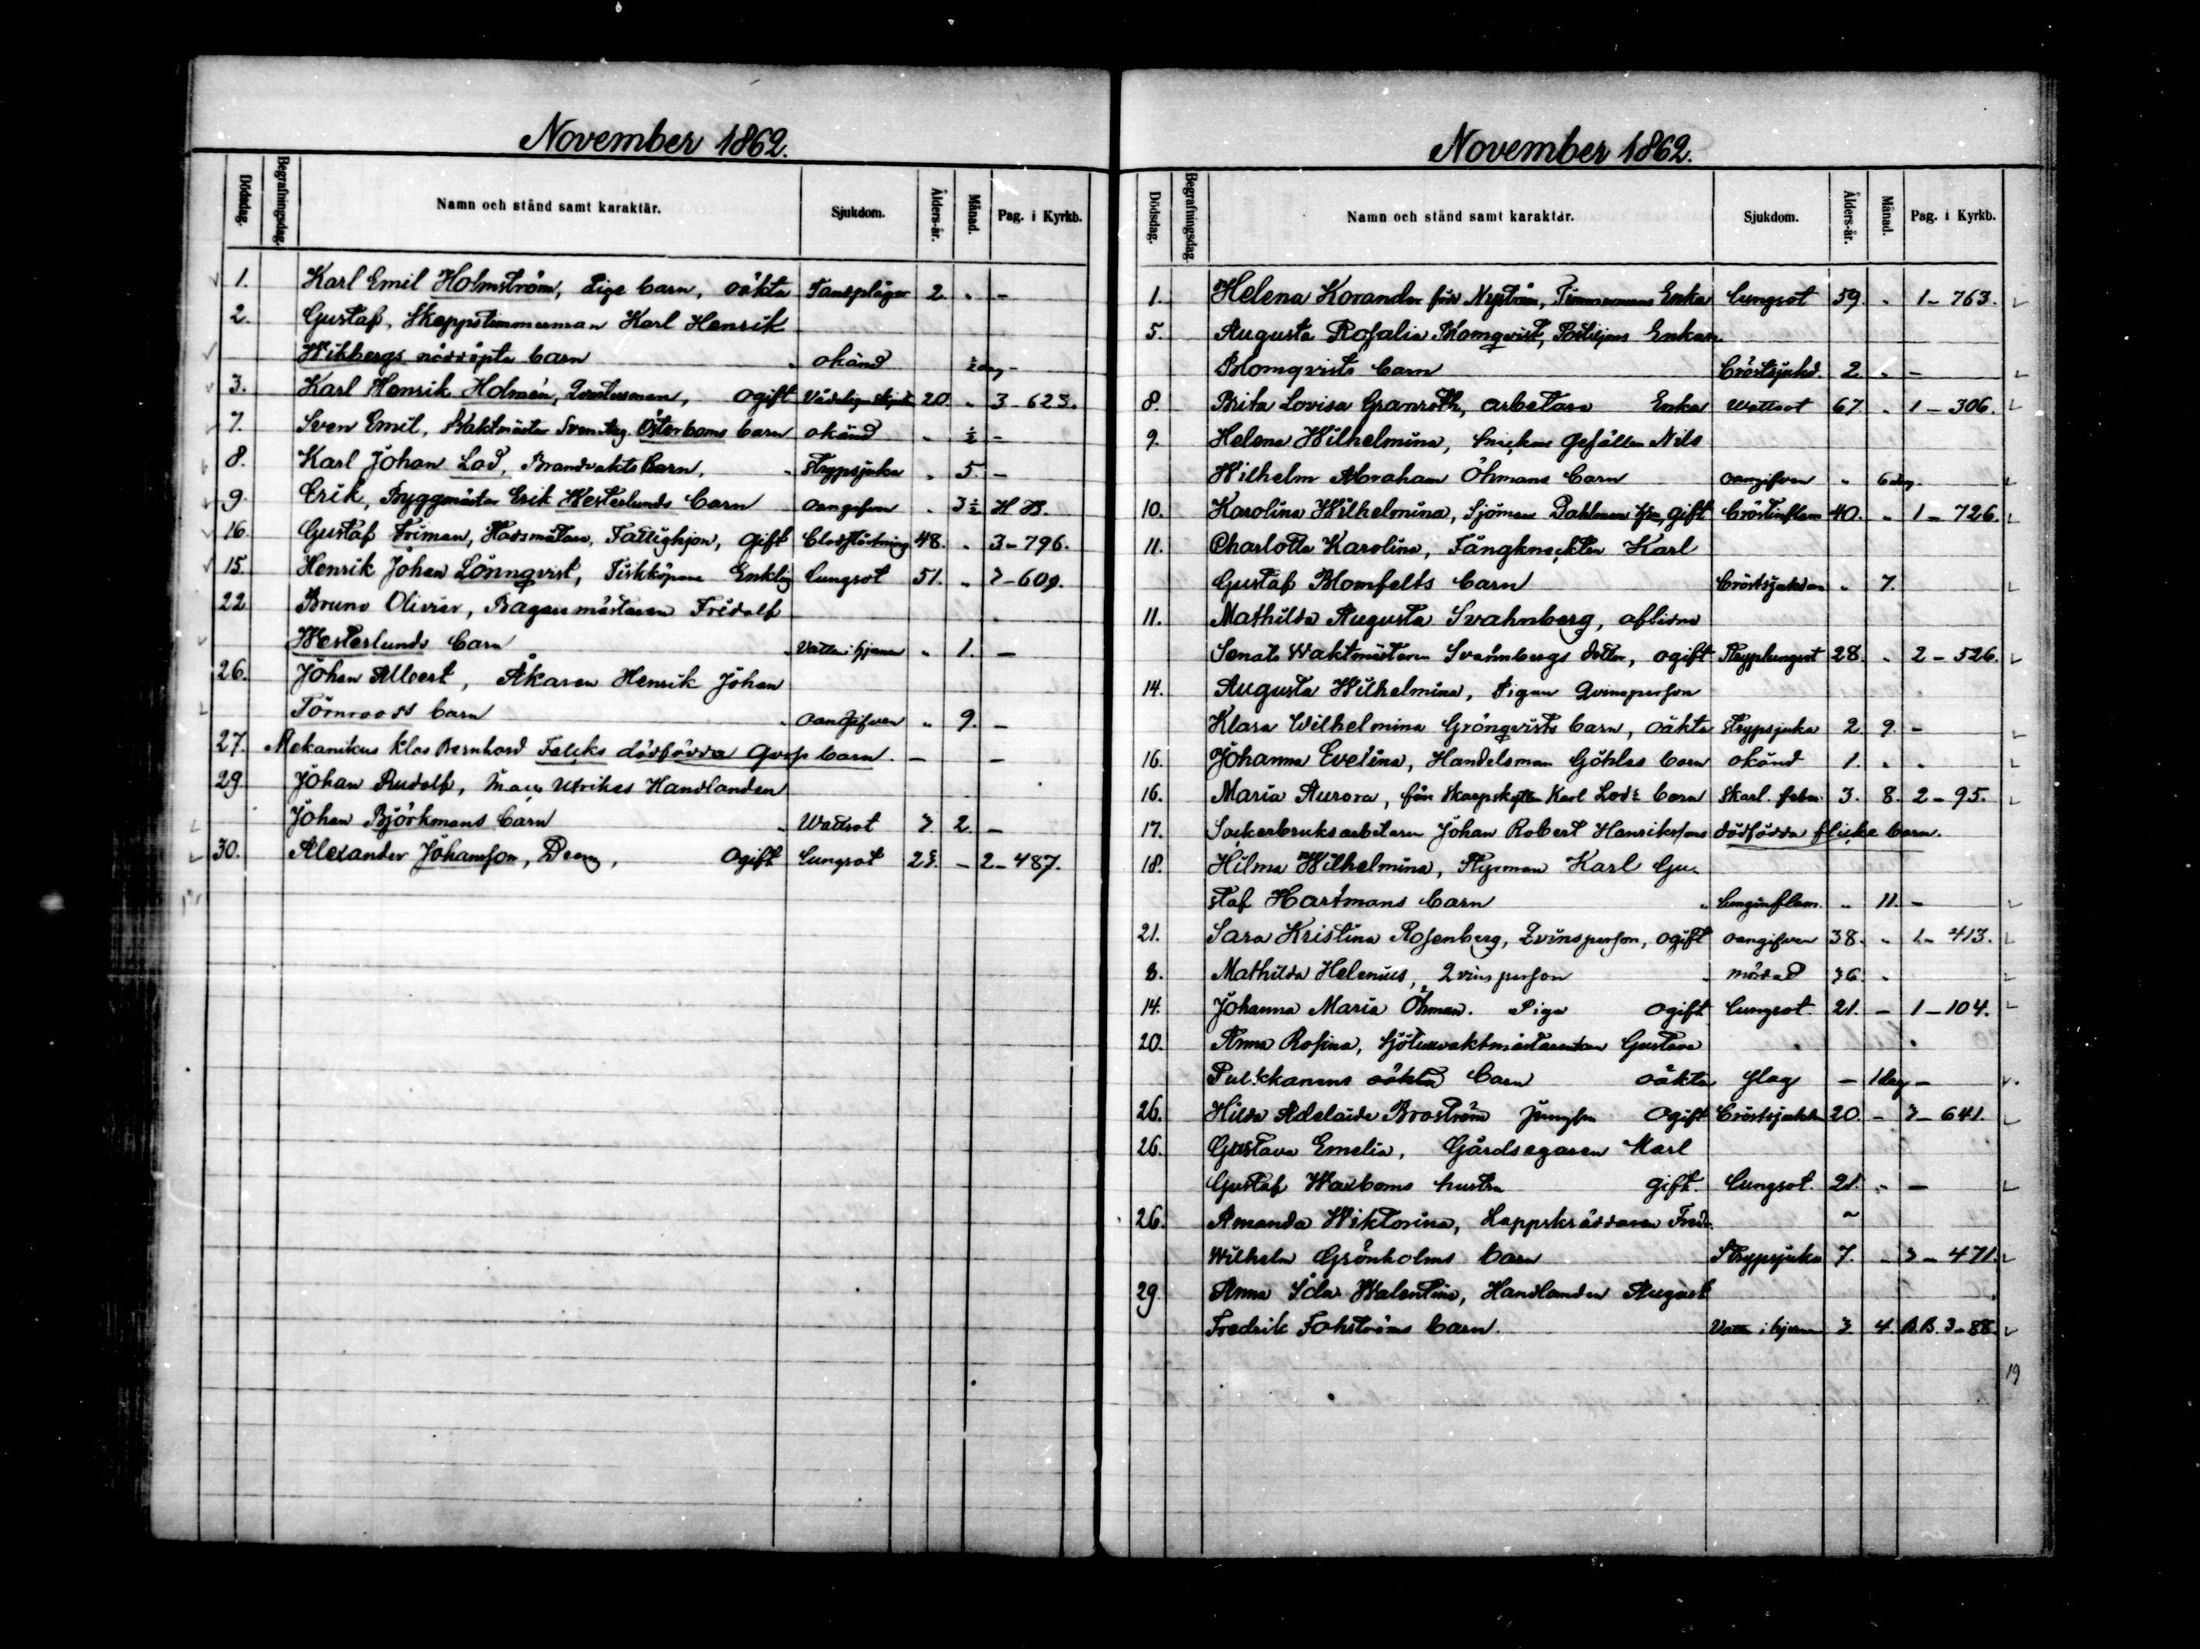 November 1862.
Dödsdag. Begrafningsdag. Namn och stånd samt karaktär. Sjukdom. Ålders-år. Månad. Pag. i Kyrkb.
1. Karl Emil Holmström, Pige barn, oäkta Tandplågor 2. " -
2. Gustaf, Skeppstimmerman Karl Henrik
Wikbergs nöddöpta barn " okänd ½ dag -
3. Karl Henrik Holmén, ogift 20. " 3-623.
7. Sven Emil, Waktmäster Sven Aug. Österboms barn okänd " ½ -
8. Karl Johan Lod, Brandvakts barn, " Strypsjuka " 5. -
9. Erik, Byggmäster Erik Westerlunds barn oangifven " 3½ H B.
16. Gustaf Friman, Fattighjon, gift Blodstörtning 48. " 3-796.
15. Henrik Johan Lönnqvist, Enkling Lungsot 51. " 3-609.
22. Bruno Olivier, Bagaremästaren Fridolf
Westerlunds barn " Vatten i hjernan " 1. -
26. Johan Albert, Åkaren Henrik Johan
Törnroos barn " oangifven " 9. -
27. Mekanikus Klas Bernhard Falcks dödfödda barn. - -
29. Johan Rudolf, Utrikes Handlanden
Johan Björkmans barn " Wattsot 3 2 -
30. Alexander Johansson, Dreng, ogift Lungsot 25. - 2-487.
November 1862.
Dödsdag. Begrafningsdag. Namn och stånd samt karaktär. Sjukdom. Ålders-år. Månad. Pag. i Kyrkb.
1. Helena Korander född Nyström, Timmermans Enka Lungsot 59. " 1-763.
5. Augusta Rosalia Blomqvist, Enkan
Blomqvists barn Bröstsjukd. 2. " -
8. Brita Lovisa Granroth, arbetare Enka Wattsot 67 " 1-306.
9. Helena Wilhelmina, Snickare Gesällen Nils
Wilhelm Abraham Öhmans barn oangifven " 6 dag.
10. Karolina Wilhelmina, Sjöman Dahlman gift Bröstinflam 40. " 1-726.
11. Charlotta Karolina, Fångknekten Karl
Gustaf Blomfelts barn Bröstsjukdom " 7.
11. Mathilda Augusta Svahnberg, aflidne
Senats Waktmästaren Svahnbergs dotter, ogift Stryplungsot 28. " 2-526.
14. Augusta Wilhelmina, Pigan Qvinsperson
Klara Wilhelmina Grönqvists barn, oäkta Strypsjuka 2. 9. -
16. Johanna Evelina, Handelsman Göhles barn okänd 1. " "
16. Maria Aurora, Karl Lods barn Skarl. feber 3. 8. 2-95.
17. Sockerbruksarbetaren Johan Robert Henrikssons dödfödda flicke barn.
18. Hilma Wilhelmina, Styrman Karl Gu-
staf Hartmans barn " Lunginflam. " 11. -
21. Sara Kristina Rosenberg, Qvinsperson, ogift oangifven 38. " 1-413.
8. Mathilda Helenius, Qvinsperson " mördad 36. "
14. Johanna Maria Öhman. Piga ogift Lungsot. 21. - 1-104.
20. Anna Rosina, Gustava
Pulkkanens oäkta barn oäkta slag - 1 dag -
26. Hilda Adelaide Broström Jungfru ogift Bröstsjukdom 20. - 3-641.
26. Gustava Emelia, Gårdsegaren Karl
Gustaf Waxboms hustru gift. Lungsot. 21. " -
26. Amanda Wiktorina, Fredr.
Wilhelm Grönholms barn Strypsjuka 7. " 3-471.
29. Anna Ida Walentina, Handlanden August
Fredrik Fohströms barn. Vatten i hjernan 3. 4. B.B. 3-88.
19